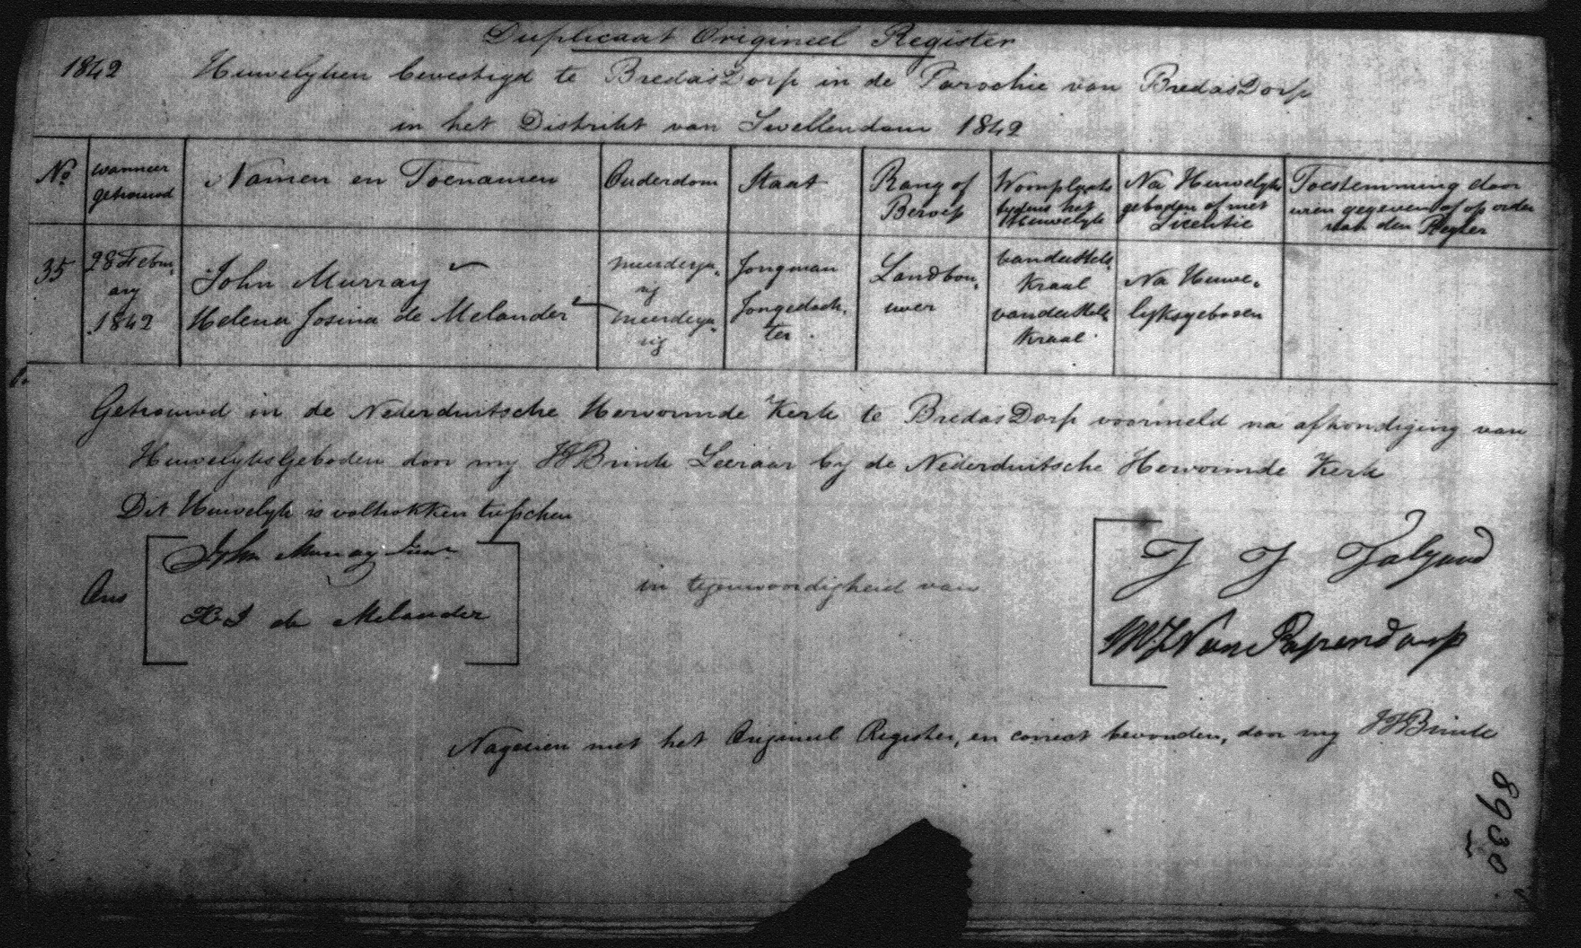 Duplicaat Origineel Register
1842 Huwelyken bevestigd te BredasDorp in de Parochie van BredasDorp
in het Distrikt van Swellendam 1842
No. wanneer getrouwd Namen en Toenamen Ouderdom Staat Rang of Beroep Woonplaats tydens het Huwelyk Na Huwelyks geboden of met Licentie Toestemming door wien gegeven of op order van den Regter
35 28 Febru.
ary
1842
John Murray
Helena Josina de Melander
meerderja.
rig
meerderja.
rig
Jongman
Jongedoch.
ter
Landbou.
wer
Kraal
Kraal
Na Huwe.
lyksgeboden
Getrouwd in de Nederduitsche Hervormde Kerk te BredasDorp voormeld na afkondiging van
Huwelyks Geboden door my JFBrink Leeraar by de Nederduitsche Hervormde Kerk
Dit Huwelyk is voltrokken tusschen
Ons
John Murray
H J de Melander
in tegenwoordigheid van
J J
Nagezien met het Origineel Register, en correct bevonden, door my JFBrink
8930